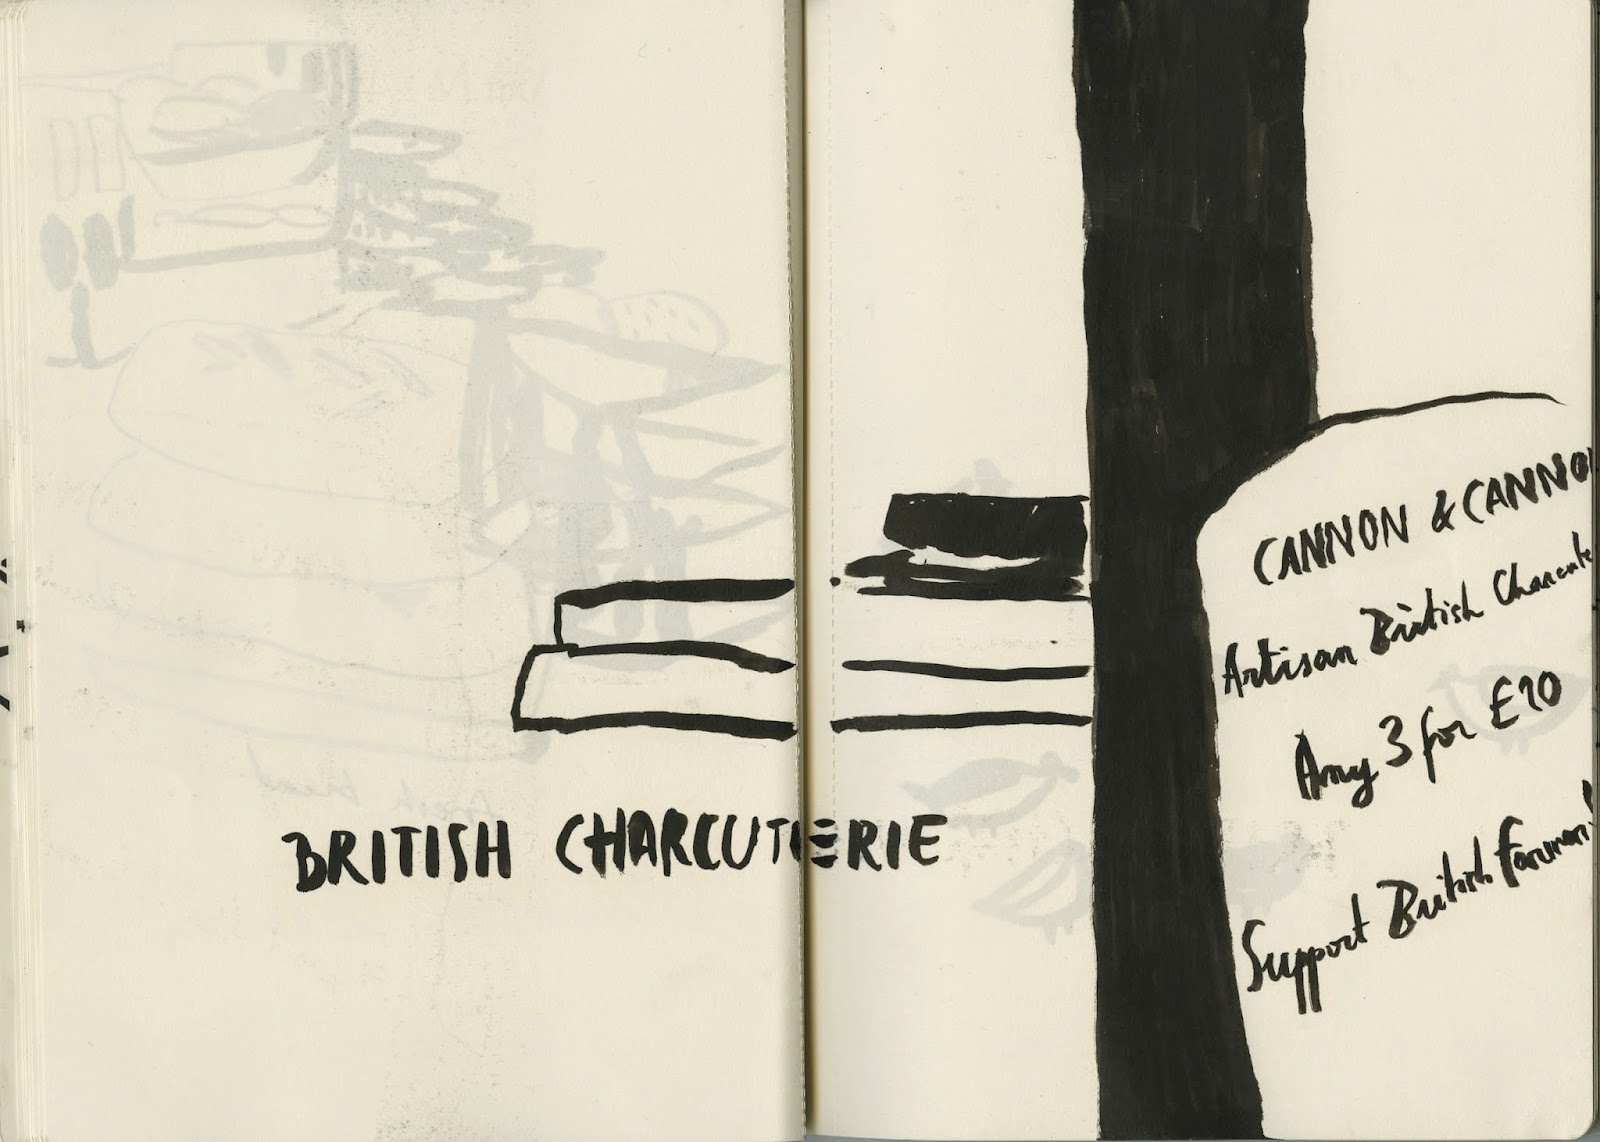 BRITISH CHARCUTERIE
CANNON & CANNON
Artisan British Charcute
Any 3 for £10
Support British Farmers!